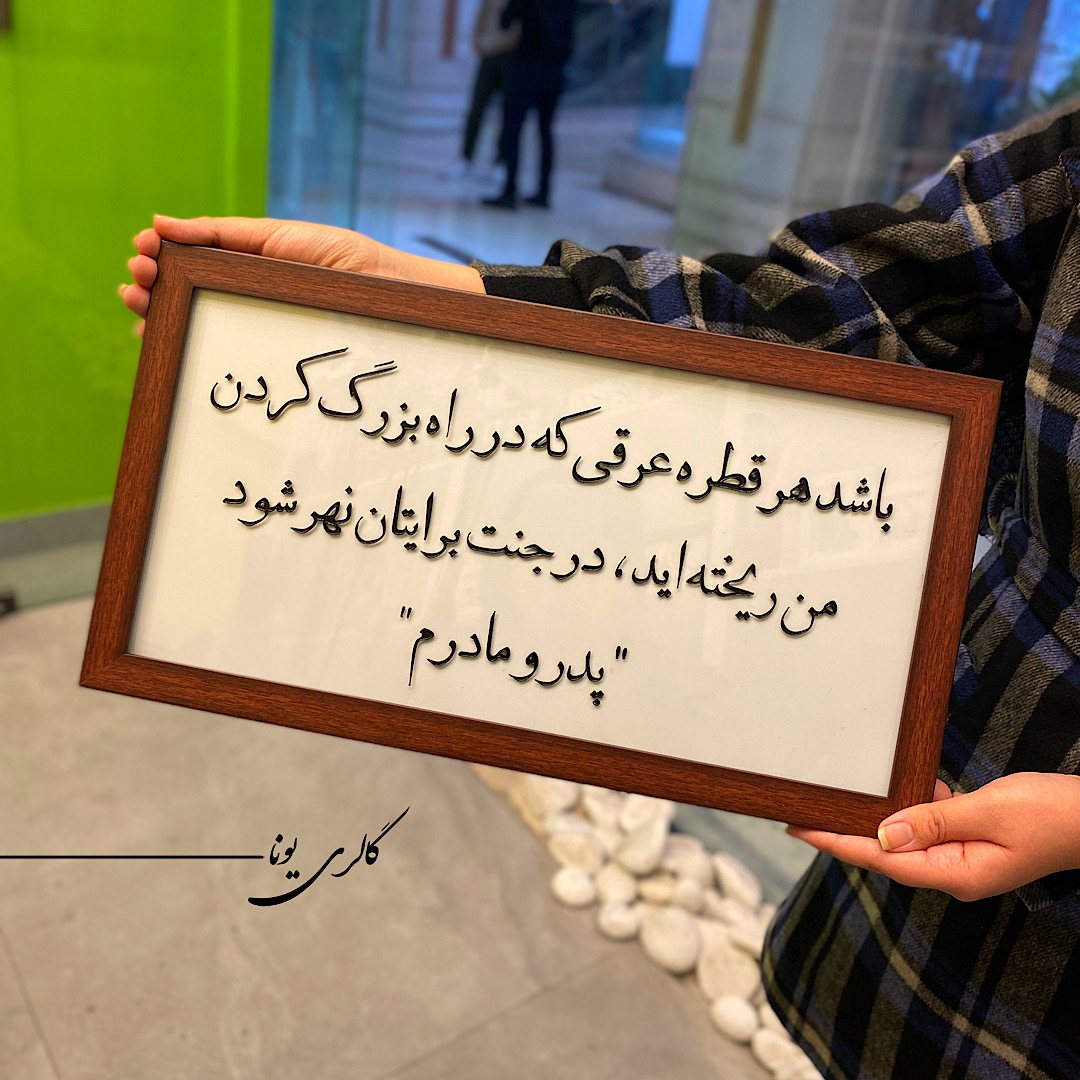 باشد هر قطره عرقی که در راه بزرگ کردن
من ریخته اید، در جنت برایتان نهر شود
"پدر و مادرم"
گالری یونا